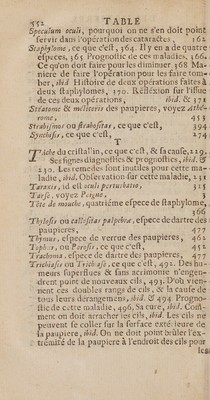 552 TABLE
Speculum oculi, pourquoy on ne s'en doit point
servir dans l'opération des cataractes, 162
Staphylome, ce que c'est, 364. Il y en a de quatre
especes, 365 Prognostic de ces maladies, 366.
Ce qu'on doit faire pour les diminuer, 368 Ma-
niere de faire l'opération pour les faire tom-
ber, ibid Histoire de deux opérations faites à
deux staphylomes, 370. Réflexion sur l'issue
de ces deux opérations, ibid. & 371
Stéatome & méliceris des paupieres, voyez Athé-
rome, 453
Strabismos ou strabositas, ce que c'est, 394
Synchisis, ce que c'est, 274
T
Tâche du cristallin, ce que c'est, & sa cause, 229.
Ses signes diagnostics & prognostics, ibid. &
230. Les remedes sont inutiles pour cette ma-
ladie, ibid. Observation sur cette maladie, 231
Taraxis, id est oculi perturbatio, 315
Tarse, voyez Peigne,
Tête de mouche, quatriéme espece de staphylome,
366
Thylosis ou callositas palpebræ, espece de dartre des
paupieres, 477
Thymus, espece de verrue des paupieres, 462
Tophus, ou Porosis, ce que c'est, 452
Trachoma, espece de dartre des paupieres, 477
Trichiasis ou Trichiase, ce que c'est, 492. Des hu-
meurs superflues & sans acrimonie n'engen-
drent point de nouveaux cils, 493. D'où vien-
nent ces doubles rangs de cils, & la cause de
tous leurs dérangemens, ibid. & 494 Progno-
stic de cette maladie, 496. Sa cure, ibid. Com-
ment on doit arracher les cils, ibid. Les cils ne
peuvent se coller sur la surface extérieure de
la paupiere, ibid. On ne doit point brûler l'ex-
trémité de la paupiere à l'endroit des cils pour